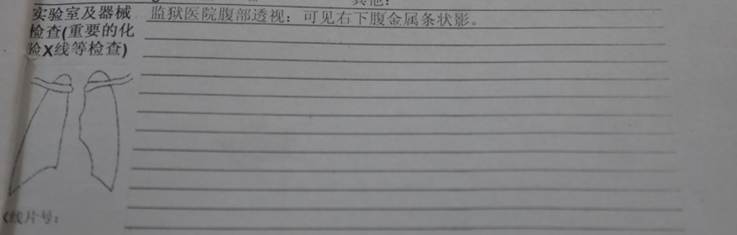 其他:
实验室及器械 监狱医院腹部透视：可见右下腹金属条状影。
检查(重要的化
验X线等检查)
X线片号：